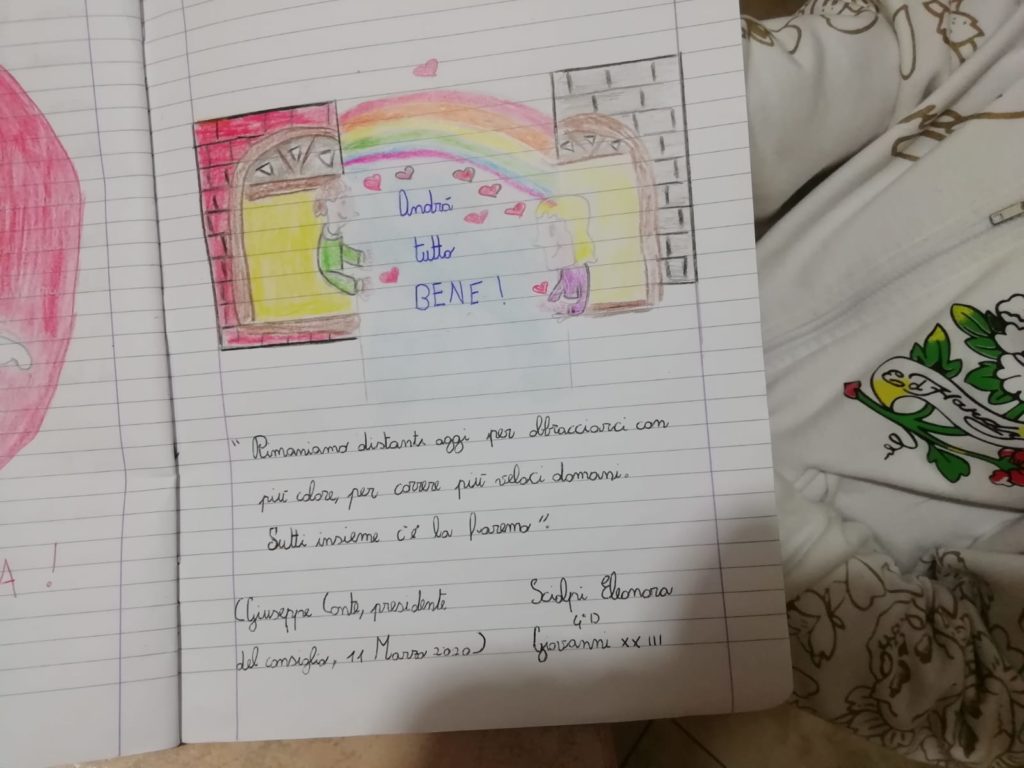 Andrá
tutto
BENE!
A !
"Rimaniamo distanti oggi per abbracciarci con
più calore, per correre più veloci domani.
Tutti insieme c'è la faremo".
(Giuseppe Conte, presidente
del consiglio, 11 Marzo 2020)
Scialpi Eleonora
4°D
Giovanni XXIII
Ed Hardy